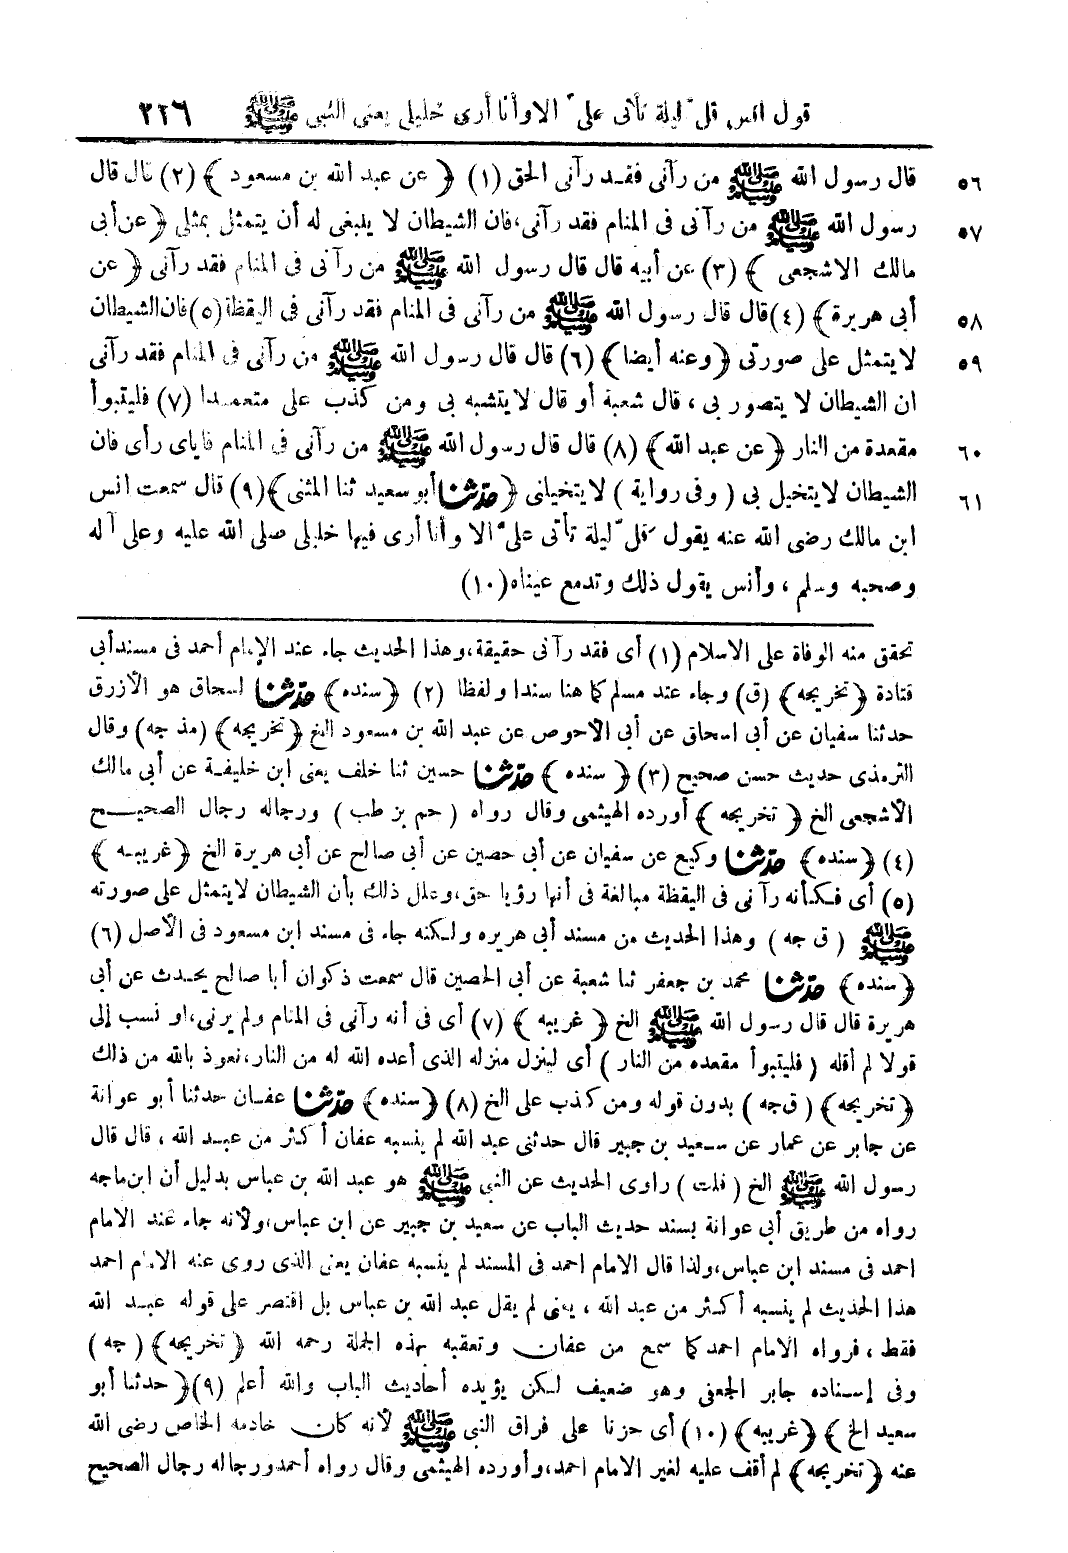 قول انس قلّ ليلة تأتى علىّ الا وأنا أرى خليلى يعنى النبى ﷺ ٢٢٦
٥٦ قال رسول الله ﷺ من رآنى فقد رآنى الحق (١) ﴿ عن عبد الله بن مسعود ﴾ (٢) قال قال
٥٧ رسول الله ﷺ من رآنى فى المنام فقد رآنى،فان الشيطان لا ينبغى له أن يتمثل بمثلى ﴿عن أبى
مالك الاشجعى ﴾ (٣) عن أبيه قال قال رسول الله ﷺ من رآنى فى المنام فقد رآنى ﴿ عن
٥٨ أبى هريرة﴾ (٤)قال قال رسول الله ﷺ من رآنى فى المنام فقد رآنى فى اليقظة (٥)فان الشيطان
٥٩ لايتمثل على صورتى ﴿وعنه أيضا﴾ (٦) قال قال رسول الله ﷺ من رآنى فى المنام فقد رآنى
ان الشيطان لا يتصور بى ، قال شعبة أو قال لايتشبه بى ومن كذب على متعمدا (٧) فليتبوأ
٦٠ مقعدة من النار ﴿عن عبد الله﴾ (٨) قال قال رسول الله ﷺ من رآنى فى المنام فاياى رأى فان
٦١ الشيطان لايتخيل بى ( وفى رواية ) لايتخيلنى ﴿حدّثنا أبو سعيد ثنا المثنى﴾(٩) قال سمعت انس
ابن مالك رضى الله عنه يقول قلّ ليلة تأتى علىّ الا وأنا أرى فيها خليلى صلى الله عليه وعلى آله
وصحبه وسلم ، وأنس يقول ذلك وتدمع عيناه(١٠)
تحقق منه الوفاة على الاسلام (١) أى فقد رآنى حقيقة،وهذا الحديث جاء عند الإمام أحمد فى مسند أبى
قتادة ﴿تخريجه﴾ (ق) وجاء عند مسلم كما هنا سندا ولفظا (٢) ﴿سنده﴾ حدّثنا اسحاق هو الأزرق
حدثنا سفيان عن أبى اسحاق عن أبى الاحوص عن عبد الله بن مسعود الخ ﴿تخريجه﴾ (مذ جه) وقال
الترمذى حديث حسن صحيح (٣) ﴿ سنده ﴾ حدّثنا حسين ثنا خلف يعنى ابن خليفة عن أبى مالك
الأشجعى الخ ﴿ تخريجه ﴾ أورده الهيثمى وقال رواه ( حم بز طب ) ورجاله رجال الصحيح
(٤) ﴿سنده﴾ حدّثنا وكيع عن سفيان عن أبى حصين عن أبى صالح عن أبى هريرة الخ ﴿غريبه ﴾
(٥) أى فكأنه رآنى فى اليقظة مبالغة فى أنها رؤيا حق،وعلل ذلك بأن الشيطان لايتمثل على صورته
ﷺ ( ق جه ) وهذا الحديث من مسند أبى هريره ولكنه جاء فى مسند ابن مسعود فى الأصل (٦)
﴿سنده﴾ حدّثنا محمد بن جعفر ثنا شعبة عن أبى الحصين قال سمعت ذكوان أبا صالح يحدث عن أبى
هريرة قال قال رسول الله ﷺ الخ ﴿ غريبه ﴾ (٧) أى فى أنه رآنى فى المنام ولم يرنى،او نسب إلى
قولا لم أقله ( فليتبوأ مقعده من النار ) أى لينزل منزله الذى أعده الله له من النار،نعوذ بالله من ذلك
﴿تخريجه﴾ ( ق جه ) بدون قوله ومن كذب على الخ (٨) ﴿سنده﴾ حدّثنا عفان حدثنا أبو عوانة
عن جابر عن عمار عن سعيد بن جبير قال حدثنى عبد الله لم ينسبه عفان أكثر من عبد الله ، قال قال
رسول الله ﷺ الخ ( قلت ) راوى الحديث عن النبى ﷺ هو عبد الله بن عباس بدليل أن ابن ماجه
رواه من طريق أبى عوانة بسند حديث الباب عن سعيد بن جبير عن ابن عباس،ولأنه جاء عند الامام
احمد فى مسند ابن عباس،ولذا قال الامام احمد فى المسند لم ينسبه عفان يعنى الذى روى عنه الامام احمد
هذا الحديث لم ينسبه أكثر من عبد الله ، يعنى لم يقل عبد الله بن عباس بل اقتصر على قوله عبد الله
فقط ، فرواه الامام احمد كما سمع من عفان وتعقبه بهذه الجملة رحمه الله ﴿ تخريجه﴾ ( جه )
وفى إسناده جابر الجعفى وهو ضعيف لكن يؤيده أحاديث الباب والله أعلم (٩)﴿ حدثنا أبو
سعيد الخ ﴾ ﴿غريبه﴾ (١٠) أى حزنا على فراق النبى ﷺ لأنه كان خادمه الخاص رضى الله
عنه ﴿تخريجه﴾ لم أقف عليه لغير الامام احمد،وأورده الهيثمى وقال رواه أحمد ورجاله رجال الصحيح